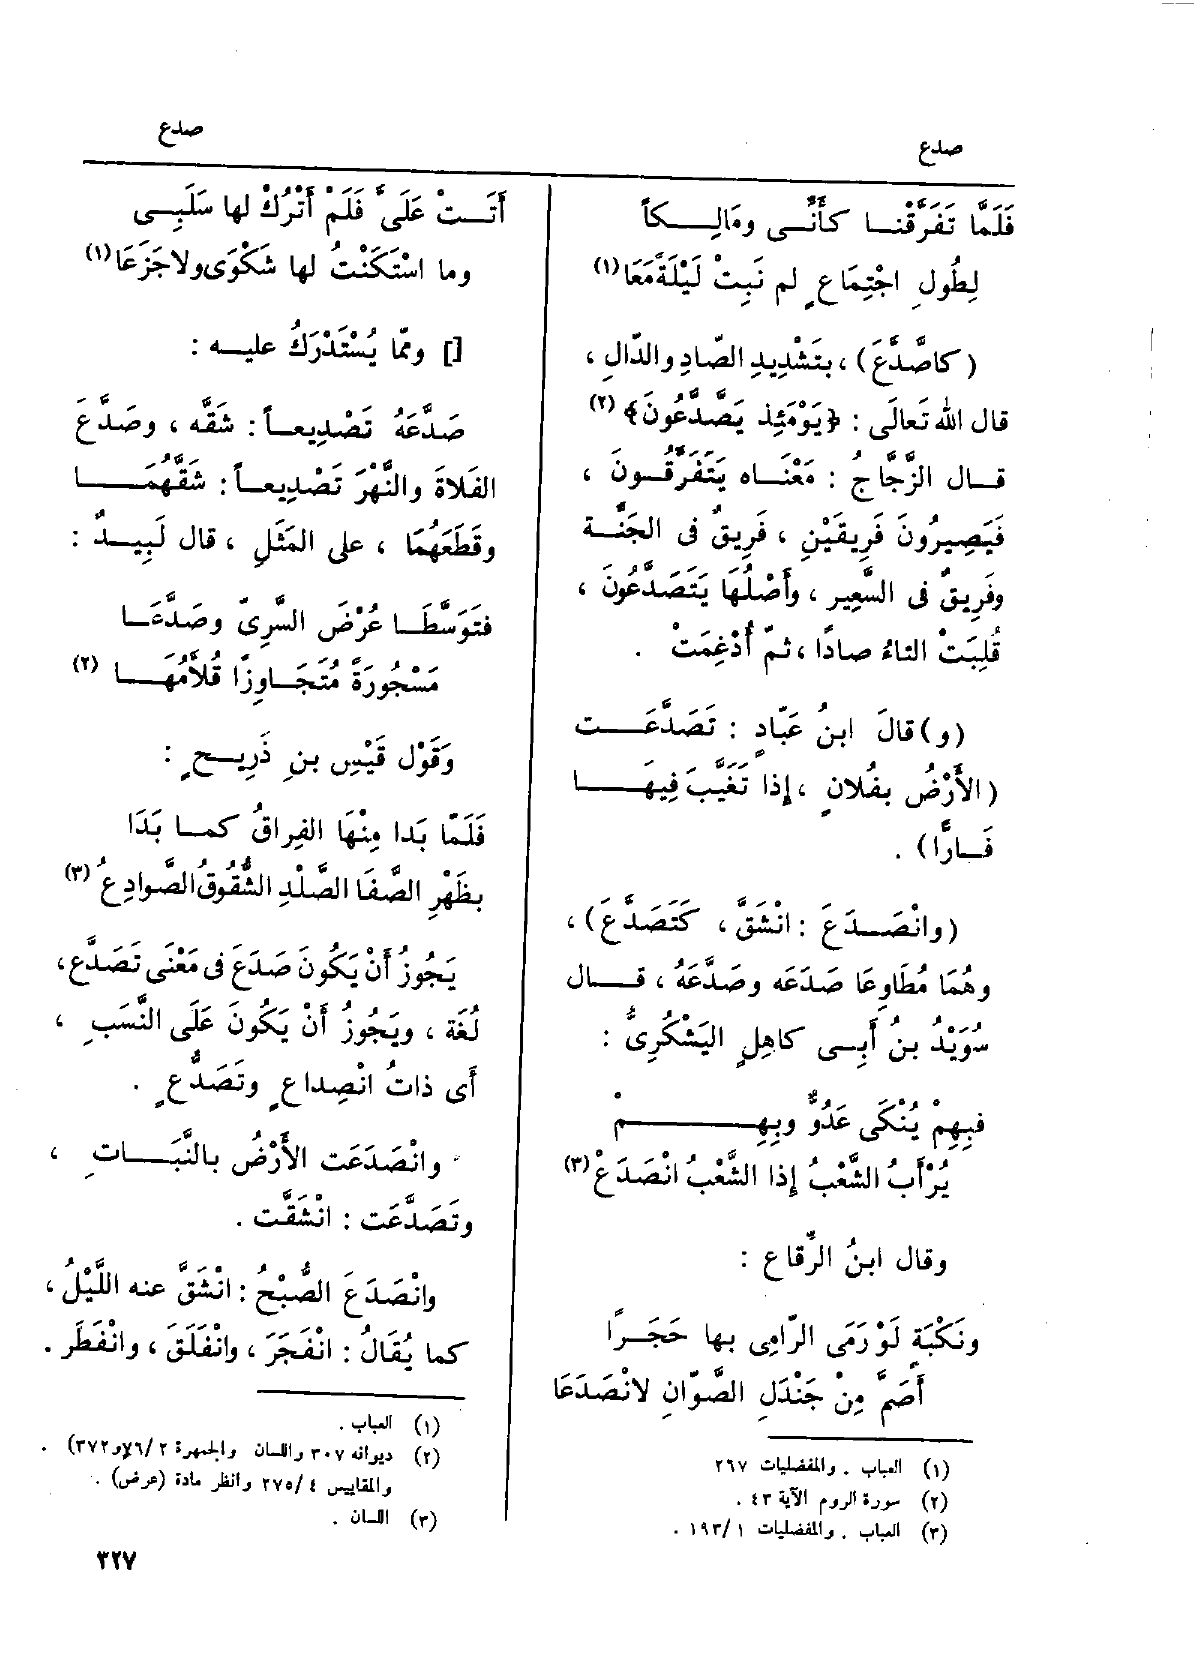 صدع
صدع
فَلَمَّا تَفَرَّقْنَـا كَأَنِّـى ومَالِـكاً
لِطُولِ اجْتِمَاعٍ لم نَبِتْ لَيْلَةً مَعَا (١)
(كاصَّدَّعَ) ، بتَشْدِيدِ الصّادِ والدّالِ ،
قال الله تَعالَى : ﴿يَوْمَئِذٍ يَصَّدَّعُونَ﴾ (٢)
قـال الزَّجَّاجُ : مَعْنَـاه يَتَفَرَّقُـونَ ،
فَيَصِيرُونَ فَرِيقَيْنِ ، فَرِيقٌ فى الجَنَّـة
وفَرِيقٌ فى السَّعِير ، وأَصْلُهَا يَتَصَدَّعُونَ ،
قُلِبَتْ التاءُ صادًا ، ثمّ أُدْغِمَتْ .
(و) قالَ ابنُ عَبّادٍ : تَصَدَّعَـت
(الأَرْضُ بفُلانٍ ، إذا تَغَيَّبَ فِيهَـا
فَـارًّا) .
(وانْصَـدَعَ : انْشَقَّ ، كَتَصَدَّعَ) ،
وهُمَا مُطَاوِعَا صَدَعَه وصَدَّعَهُ ، قـال
سُوَيْدُ بنُ أَبِـى كاهِلٍ اليَشْكُرِىُّ :
فبِهِمْ يُنْكَى عَدُوٌّ وبِهِـمْ
يُرْأَبُ الشَّعْبُ إذا الشَّعْبُ انْصَدَعْ (٣)
وقال ابنُ الرِّقاع :
ونَكْبَةٍ لَوْ رَمَى الرّامِى بها حَجَـرًا
أَصَمَّ مِنْ جَنْدَلِ الصَّوّانِ لانْصَدَعَا
(١) العباب . والمفضليات ٢٦٧
(٢) سورة الروم الآية ٤٣ .
(٣) العباب . والمفضليات ١/ ١٩٣ .
أَتَـتْ عَلَىَّ فَلَمْ أَتْرُكْ لها سَلَبِـى
وما اسْتَكَنْتُ لها شَكْوَى ولا جَزَعَا (١)
[] وممّا يُسْتَدْرَكُ عليـه :
صَدَّعَهُ تَصْدِيعـاً : شَقَّه ، وصَدَّعَ
الفَلاةَ والنَّهْرَ تَصْدِيعـاً : شَقَّهُمَـا
وقَطَعَهُمَا ، على المَثَلِ ، قال لَبِيـدٌ :
فتَوَسَّطَـا عُرْضَ السَّرِىّ وصَدَّعَـا
مَسْجُورَةً مُتَجَـاوِزًا قُلاَّمُهَـا (٢)
وَقَوْل قَيْسِ بنِ ذَرِيـحٍ :
فَلَمّا بَدا مِنْهَا الفِراقُ كمـا بَدَا
بظَهْرِ الصَّفَا الصَّلْدِ الشُّقُوقُ الصَّوادِعُ (٣)
يَجُوزُ أَنْ يَكُونَ صَدَعَ فى مَعْنَى تَصَدَّع ،
لُغَة ، ويَجُوزُ أَنْ يَكُونَ عَلَى النَّسَبِ ،
أَى ذاتُ انْصِداعٍ وتَصَدُّعٍ .
وانْصَدَعَت الأَرْضُ بالنَّبَـاتِ ،
وتَصَدَّعَت : انْشَقَّت .
وانْصَدَعَ الصُّبْحُ : انْشَقَّ عنه اللَّيْلُ ،
كما يُقَالُ : انْفَجَرَ ، وانْفَلَقَ ، وانْفَطَر .
(١) العباب .
(٢) ديوانه ٣٠٧ واللسان والجمهرة ٢ /٧٦و٣٧٢) .
والمقاييس ٤ /٢٧٥ وانظر مادة (عرض) .
(٣) اللسان .
٣٢٧